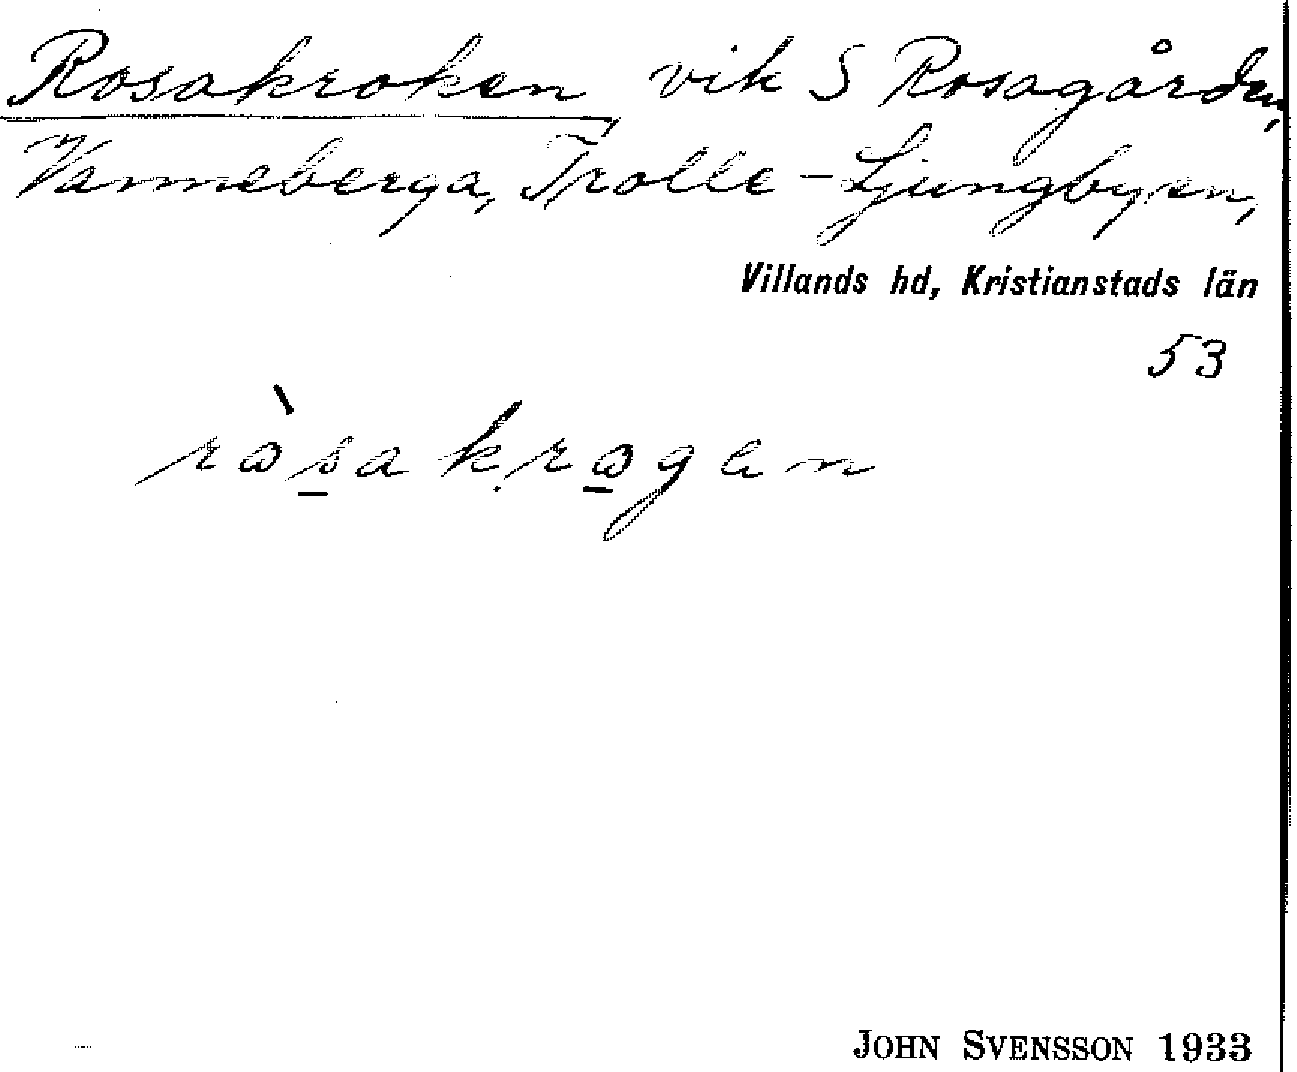 Rosakroken vik S Rosagården,
Vanneberga, Trolle-Ljungby sn,
Villands hd, Kristianstads län
53
ròsakrogen
JOHN SVENSSON 1933